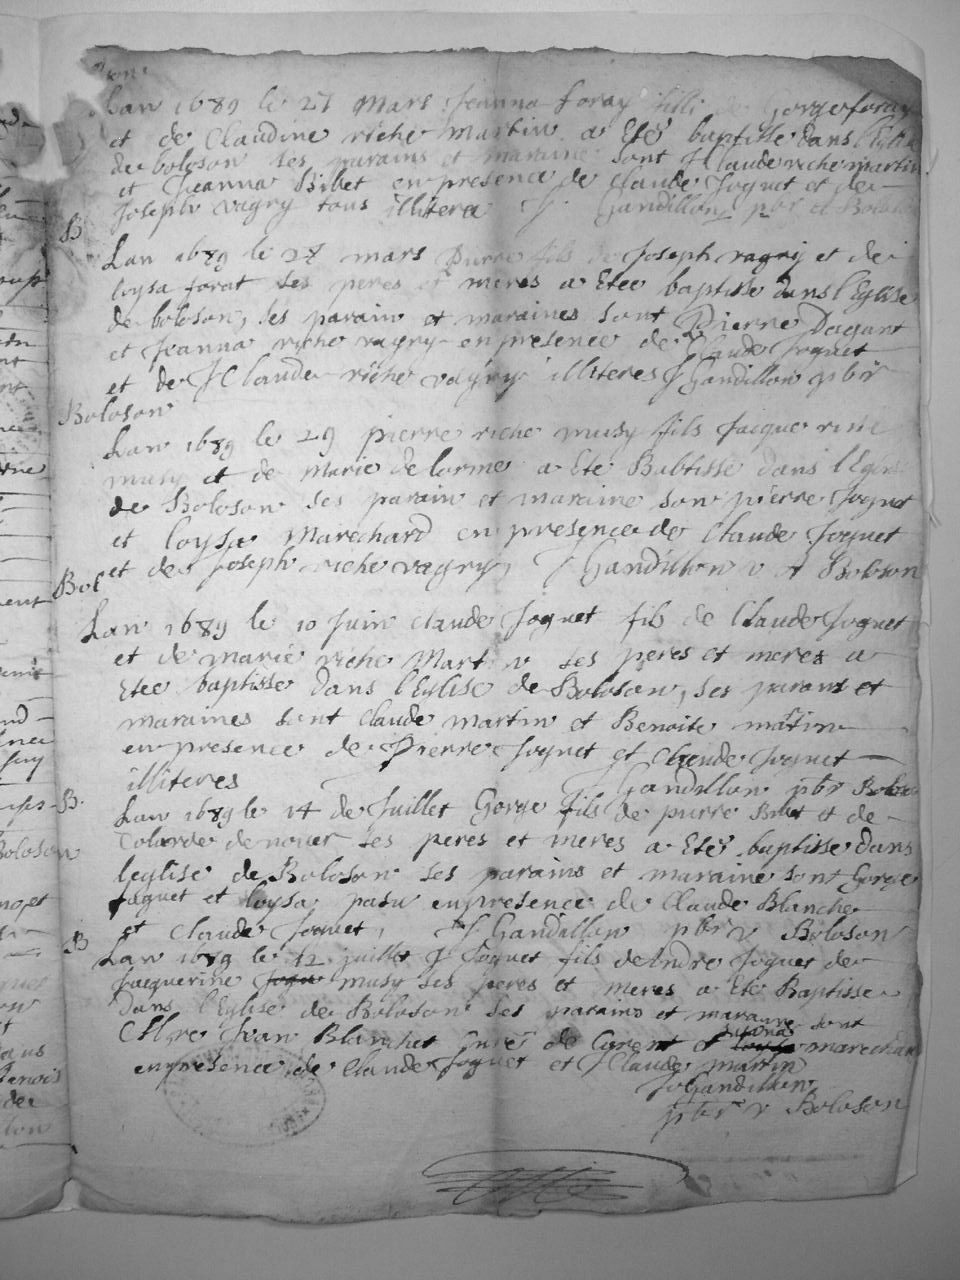 Lan 1689 le 27 Mars Jeanna foray filli de Gorge foray
et de Claudine riche martin a Eteé baptisse dans l'Eglise
de boloson ses parains et maraine sont J Claude riche martin
et Jeanna Bibet en presence de Claude Joguet et de
Joseph vagry tous illitera J Gandillon pbr v Boloson
B
Lan 1689 le 28 mars Pierre fils de Joseph vagry et de
loysa forat ses peres et meres a Etee baptisse dans l'Eglise
de boloson, ses parain et maraines sont Pierre Dagant
et Jeanna riche vagry en presence de Claude Joguet
et de J Claude riche vagry illiteres J Gandillon pbr
Boloson
Lan 1689 le 29 pierre riche musy fils Jacque riche
musy et de Marie delorme a Ete Babtisse dans l'Eglise
de Boloson ses parain et maraine son pierre Joguet
et loysa Marechard en presence de Claude Joguet
et de Joseph riche vagry, J Gandillon v Boloson
Bol
Lan 1689 le 10 Juin claude Joguet fils de Claude Joguet
et de marie riche Martin ses peres et meres a
Etee baptisse dans l'Eglise de Boloson, ses parans et
maraines sont Claude martin et Benoite mâtin
en presence de Pierre Joguet et Claude Joguet
illiteres J Gandillon pbr Boloson
B
Lan 1689 le 14 de Juillet Gorge fils de pierre Bibet et de
de nover ses peres et meres a Eteé baptisse dans
leglise de Boloson ses parains et maraine sont Gorge
Jaguet et loysa en presence de Claude Blanche
et Claude Joguet, J Gandillon pbr v Boloson
B
Lan 1689 le 12 juillet J Joguet fils de Andre Joguet de
Jacquerine musy ses peres et meres a Ete Baptisse
Dans l'Eglise de Boloson ses parains et maraine sont
Jean Blanchet Curé de et marechard
en presence de Claude Joguet et J Claude martin
J Gandillon
pbr v Boloson